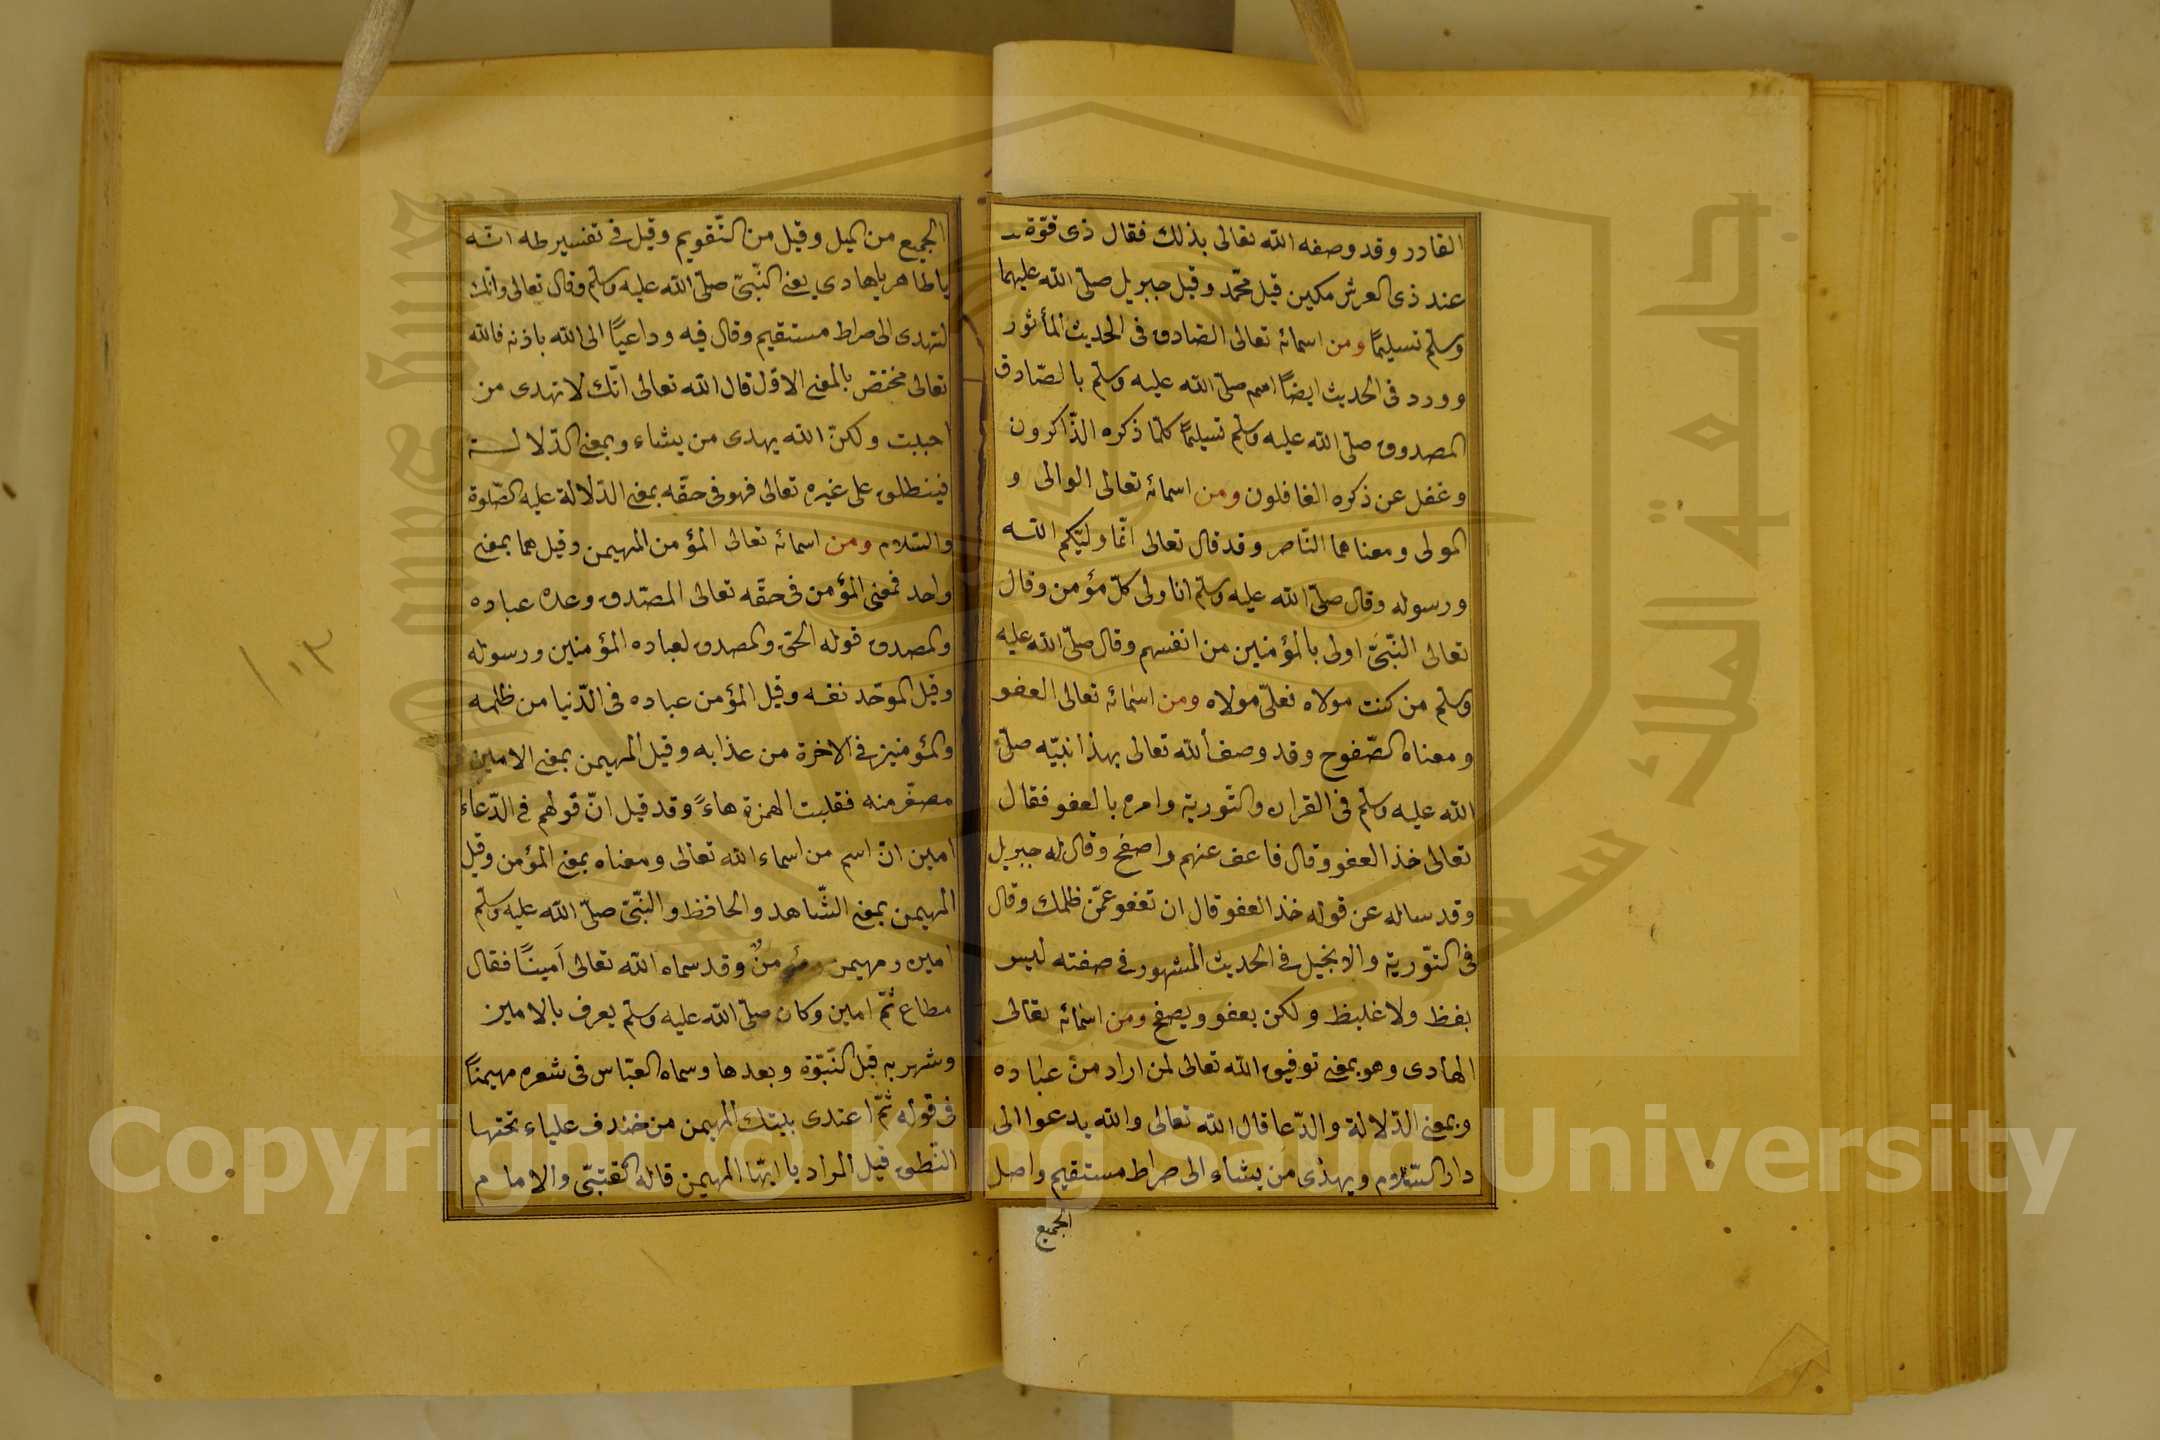 القادر وقد وصفه الله تعالى بذلك فقال ذى قوّة
عند ذى العرش مكين قيل محمّد وقيل جبريل صلّى الله عليهما
وسلّم تسليمًا ومن اسمائه تعالى الصّادق فى الحديث المأثور
وورد فى الحديث ايضاً اسم صلّى الله عليه وسلّم بالصّادق
المصدوق صلّى الله عليه وسلّم تسليمًا كلّما ذكره الذّاكرون
وغفل عن ذكره الغافلون ومن اسمائه تعالى الوالى و
المولى ومعناهما النّاصر وقد قال تعالى انّما وليّكم الله
ورسوله وقال صلّى الله عليه وسلّم انا ولى كلّ مؤمن وقال
تعالى النّبىّ اولى بالمؤمنين من انفسهم وقال صلّى الله عليه
وسلّم من كنت مولاه فعلىّ مولاه ومن اسمائه تعالى العفو
ومعناه الصّفوح وقد وصف الله تعالى بهذا نبيّه صلّى
الله عليه وسلّم فى القران والتّورية وامره بالعفو فقال
تعالى خذ العفو وقال فاعف عنهم واصفح وقال له جبريل
وقد ساله عن قوله خذ العفو قال ان تعفو عمّن ظلمك وقال
فى التّورية والانجيل فى الحديث المشهور فى صفته ليس
بفظ ولا غليظ ولكن يعفو ويصفح ومن اسمائه تعالى
الهادى وهو بمعنى توفيق الله تعالى لمن اراد من عباده
وبمعنى الدّلالة والدّعا قال الله تعالى والله يدعوا الى
دار السّلام ويهدى من يشاء الى صراط مستقيم واصل
الجميع
الجميع من الميل وقيل من التّقويم وقيل فى تفسير طه انّه
يا طاهر يا هادي يعنى النّبىّ صلّى الله عليه وسلّم وقال تعالى وانّك
لتهدى الى صراط مستقيم وقال فيه وداعيًا الى الله باذنه فالله
تعالى مختص بالمعنى الاوّل قال الله تعالى انّك لا تهدى من
احببت ولكنّ الله يهدى من يشاء وبمعنى الدّلالة
فينطلق على غيره تعالى فهو فى حقّه بمعنى الدّلالة عليه الصّلوة
والسّلام ومن اسمائه تعالى المؤمن المهيمن وقيل هما بمعنى
واحد فمعنى المؤمن فى حقّه تعالى المصّدق وعده عباده
والمصدق قوله الحق والمصدق لعباده المؤمنين ورسوله
وقيل الموحّد نفسه وقيل المؤمن عباده فى الدّنيا من ظلمه
والمؤمنين فى الاخرة من عذابه وقيل المهيمن بمعنى الامين
مصغّر منه فقلبت الهمزة هاءً وقد قيل انّ قولهم فى الدّعاء
امين انّ اسم من اسماء الله تعالى ومعناه بمعنى المؤمن وقيل
المهيمن بمعنى الشّاهد والحافظ والنّبىّ صلّى الله عليه وسلّم
امين ومهيمن ومؤمنٌ وقد سماه الله تعالى اَمينًا فقال
مطاع ثمّ امين وكان صلّى الله عليه وسلّم يعرف بالامين
وشهر به قبل النّبوّة وبعدها وسماه العبّاس فى شعره مهيمنًا
فى قوله ثمّ اعتدى بيتك المهيمن من خندف علياء تحتها
النّطق قيل المراد يا ايّها المهيمن قاله القتبّى والامام
١٠٣
Copyright © King Saud University
جامعة الملك سعود
King Saud University